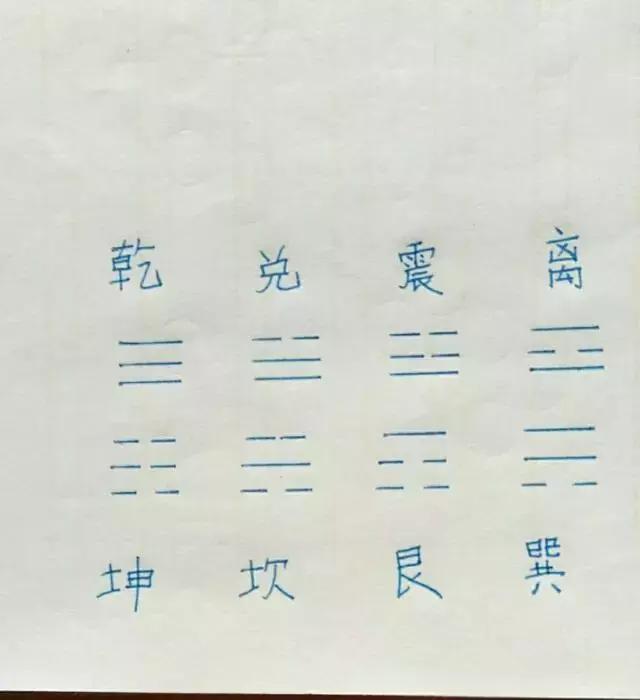 乾 兑 震 离
☰ ☱ ☳ ☲
☷ ☵ ☶ ☴
坤 坎 艮 巽